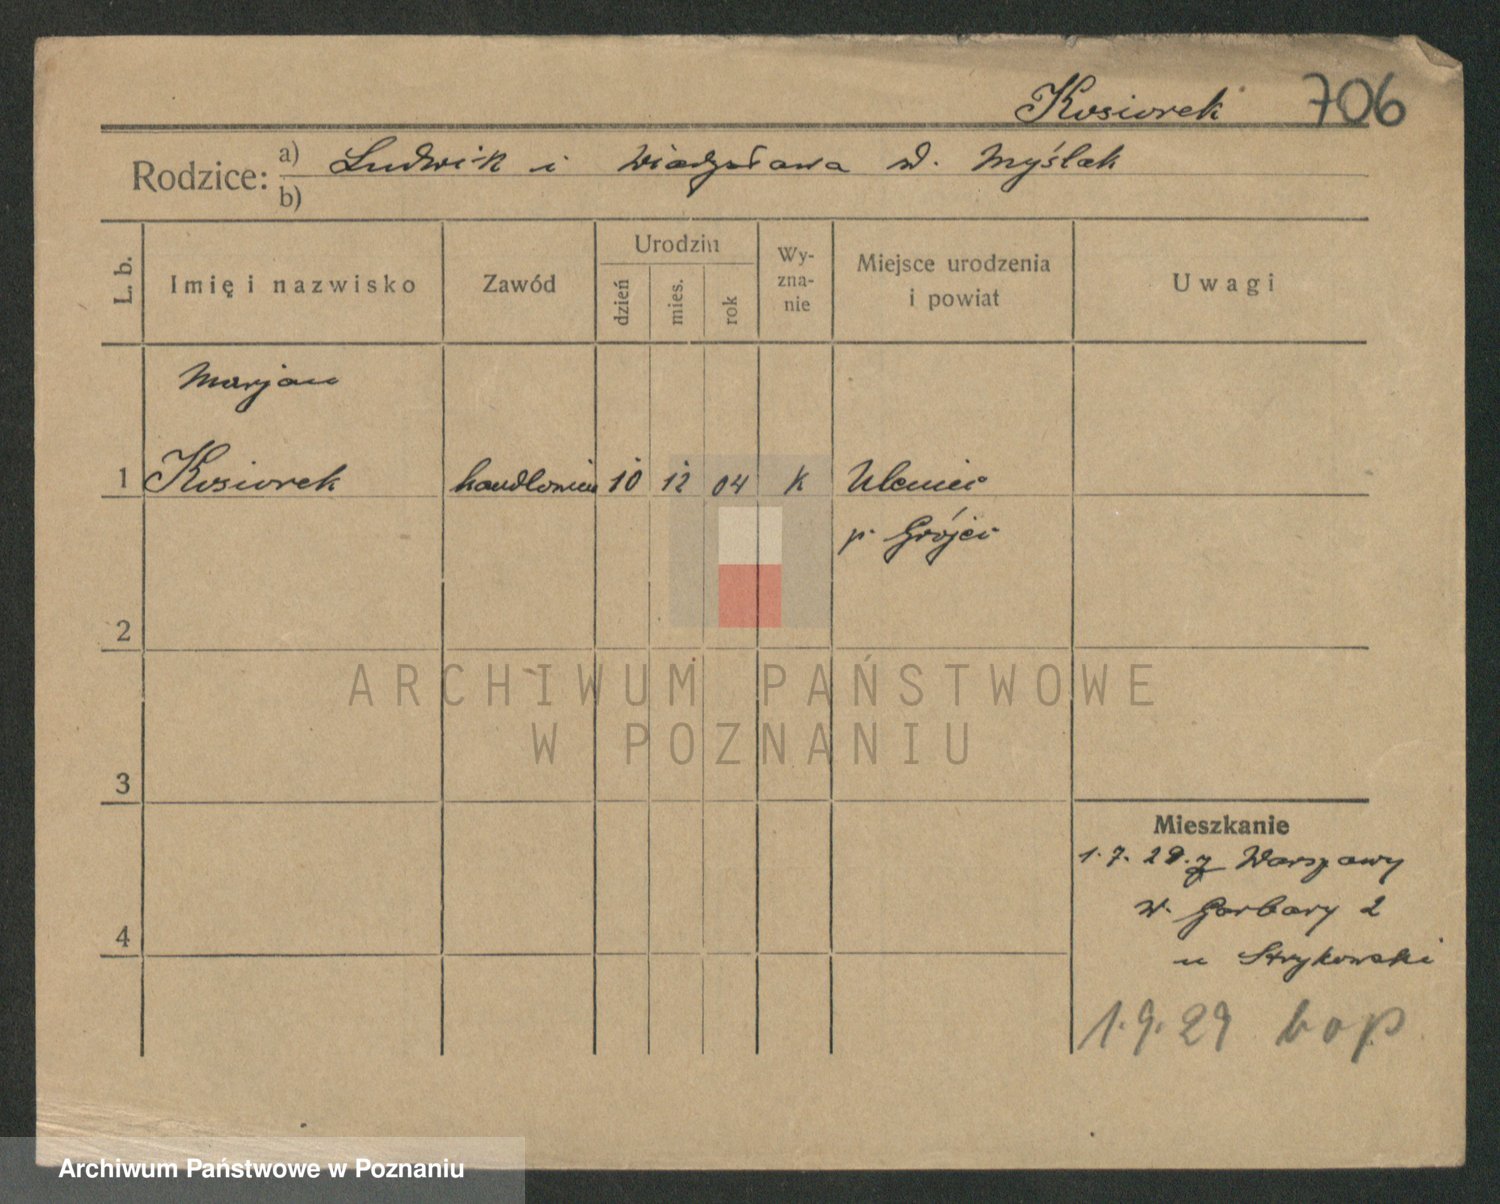 Kosiorek 706
Rodzice: a) Ludwik i Władysława d. Myślak
b)
L. b. Imię i nazwisko Zawód Urodzin dzień mies. rok Wy-zna-nie Miejsce urodzenia i powiat Uwagi
Marjan
1 Kosiorek handlowiec 10 12 04 K Uleniec
p. Grójec
2
ARCHIWUM PAŃSTWOWE
W POZNANIU
3
Mieszkanie
1.7.29. z Warszawy
w. Garbary 2
4
u Strykowski
1.9.29 bop
Archiwum Państwowe w Poznaniu